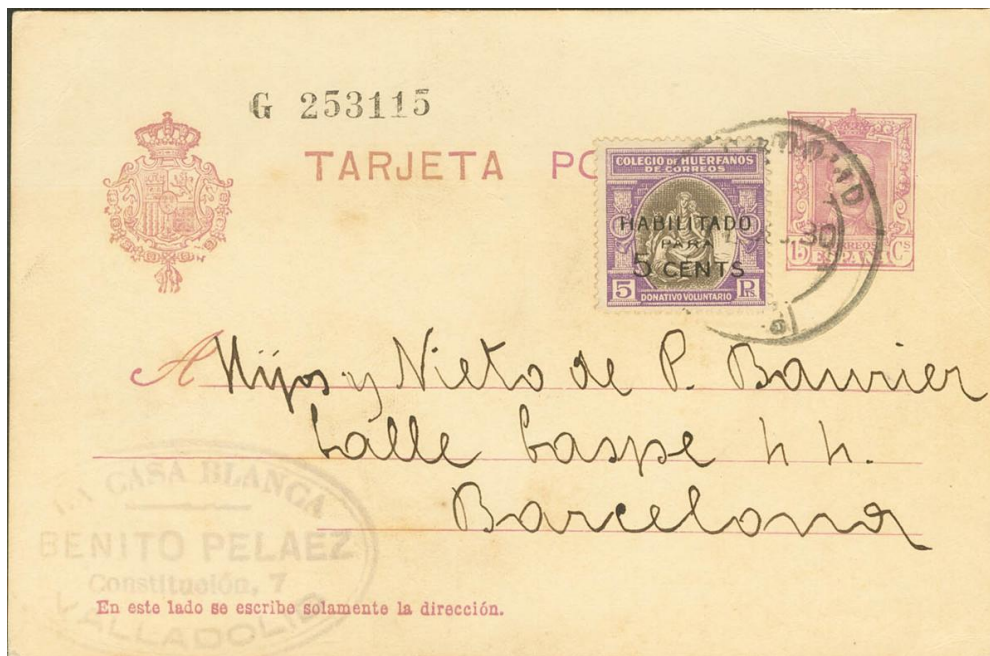 G 253115
TARJETA PO
COLEGIO DE HUERFANOS
DE CORREOS
HABILITADO
PARA
5 CENTS
5 Pts
DONATIVO VOLUNTARIO
30
CORREOS
15 ESPAÑA Cs
A Hijos y Nieto de P. Baurier
Calle Caspe 44.
Barcelona
LA CASA BLANCA
BENITO PELAEZ
Constitución, 7
VALLADOLID
En este lado se escribe solamente la dirección.